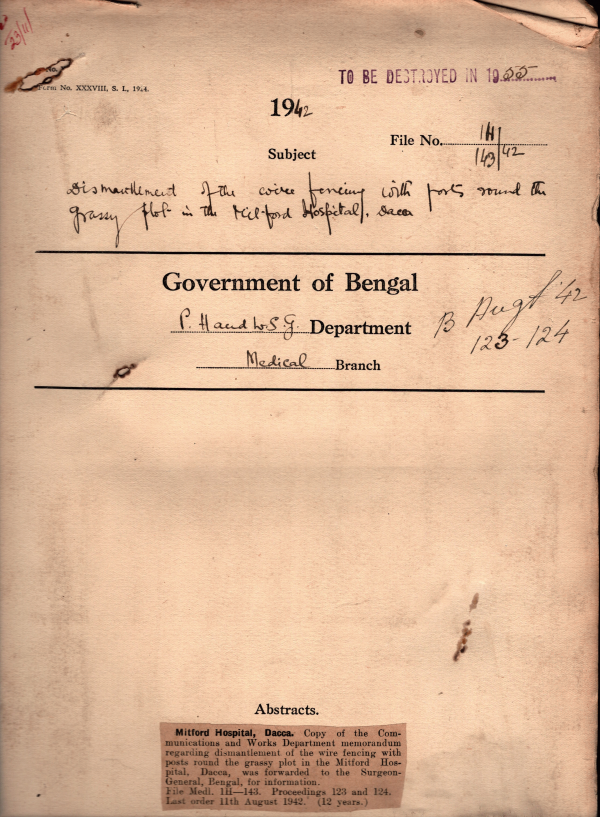 23/11
No.
Form No. XXXVIII, S. I., 1924.
TO BE DESTROYED IN 1955
1942
File No. 1H/143/42
Subject
Dismantlement of the wire fencing with posts round the
grassy plot in the Mitford Hospital, Dacca
Government of Bengal
P. H and L. S. G. Department
B Augt '42
123-124
Medical Branch
Abstracts.
Mitford Hospital, Dacca. Copy of the Com-
munications and Works Department memorandum
regarding dismantlement of the wire fencing with
posts round the grassy plot in the Mitford Hos-
pital, Dacca, was forwarded to the Surgeon-
General, Bengal, for information.
File Medl. 1H—143. Proceedings 123 and 124.
Last order 11th August 1942. (12 years.)